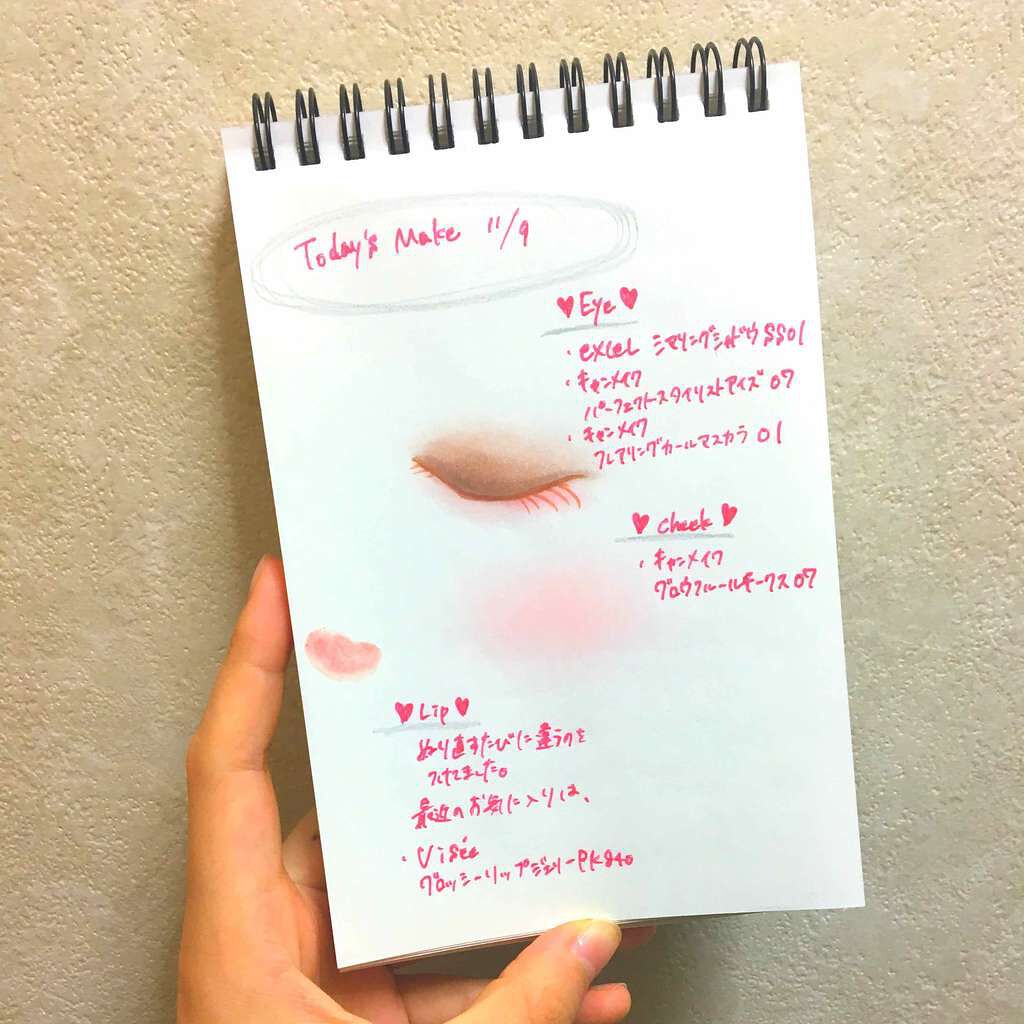 Today's Make 11/9
♥Eye♥
・excel シマリングシャドウ SS01
・キャンメイク
パーフェクトスタイリストアイズ 07
・キャンメイク
フレアリングカールマスカラ 01
♥cheek♥
・キャンメイク
グロウフルールチークス 07
♥Lip♥
ぬり直すたびに違うのを
つけてました。
最近のお気に入りは、
・Visée
グロッシーリップジェリー PK840